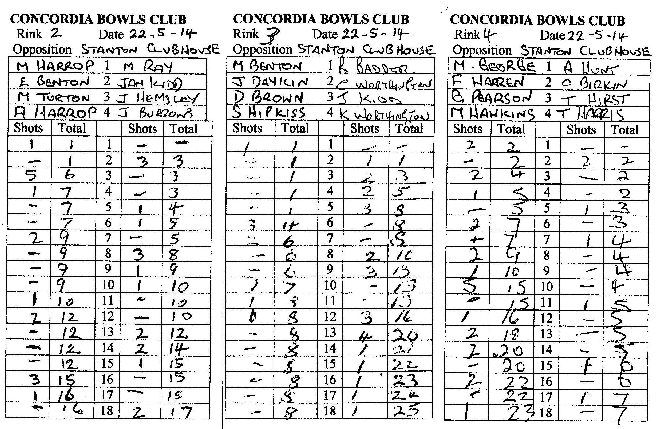 CONCORDIA BOWLS CLUB
Rink 2 Date 22-5-14
Opposition STANTON CLUBHOUSE
M HARROP 1 M RAY
E BENTON 2
M TURTON 3 J HEMSLEY
A HARROP 4 J BURROWS
Shots Total Shots Total
1 1 1 - -
- 1 2 3 3
5 6 3 - 3
1 7 4 - 3
- 7 5 1 4
- 7 6 1 5
2 9 7 - 5
- 9 8 3 8
- 9 9 1 9
- 9 10 1 10
1 10 11 - 10
2 12 12 - 10
- 12 13 2 12
- 12 14 2 14
- 12 15 1 15
3 15 16 - 15
1 16 17 - 15
- 16 18 2 17
CONCORDIA BOWLS CLUB
Rink 3 Date 22-5-14
Opposition STANTON CLUBHOUSE
M BENTON 1 BADDER
J DAYKIN 2 C WORTHINGTON
D BROWN 3 J KIDD
S HIPKISS 4 K WORTHINGTON
Shots Total Shots Total
1 1 1 - -
- 1 2 1 1
- 1 3 2 3
- 1 4 2 5
- 1 5 3 8
3 4 6 - 8
2 6 7 - 8
- 6 8 2 10
- 6 9 3 13
1 7 10 - 13
1 8 11 - 13
8 12 3 16
- 8 13 4 20
- 8 14 1 21
- 8 15 1 22
- 8 16 1 23
- 8 17 1 24
- 8 18 1 25
CONCORDIA BOWLS CLUB
Rink 4 Date 22-5-14
Opposition STANTON CLUBHOUSE
M GEORGE 1 A HUNT
F WARREN 2 C BIRKIN
B PEARSON 3 T HIRST
M HAWKINS 4 T HARRIS
Shots Total Shots Total
2 2 1 - -
- 2 2 2 2
2 4 3 - 2
1 5 4 - 2
- 5 5 1 3
2 7 6 - 3
7 7 1 4
2 9 8 - 4
1 10 9 - 4
5 15 10 - 4
- 15 11 1 5
1 16 12 - 5
2 18 13 - 5
2 20 14 - 5
- 20 15 1 6
2 22 16 - 6
- 22 17 1 7
1 23 18 - 7